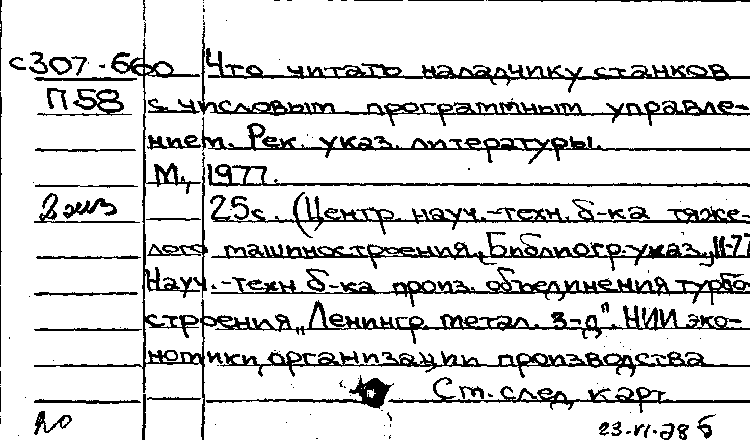 с307-660 Что читать наладчику станков
П58 с числовым программным управле-
нием. Рек. указ. литературы.
М., 1977.
2 экз 25с. (Центр. науч.-техн. б-ка тяже-
лого машиностроения, Библиогр. указ., 11-77
Науч.-техн. б-ка произ. объединения турбо-
строения „Ленингр. метал. з-д". НИИ эко-
номики, организации производства
См. след. карт.
23.VI.78 б